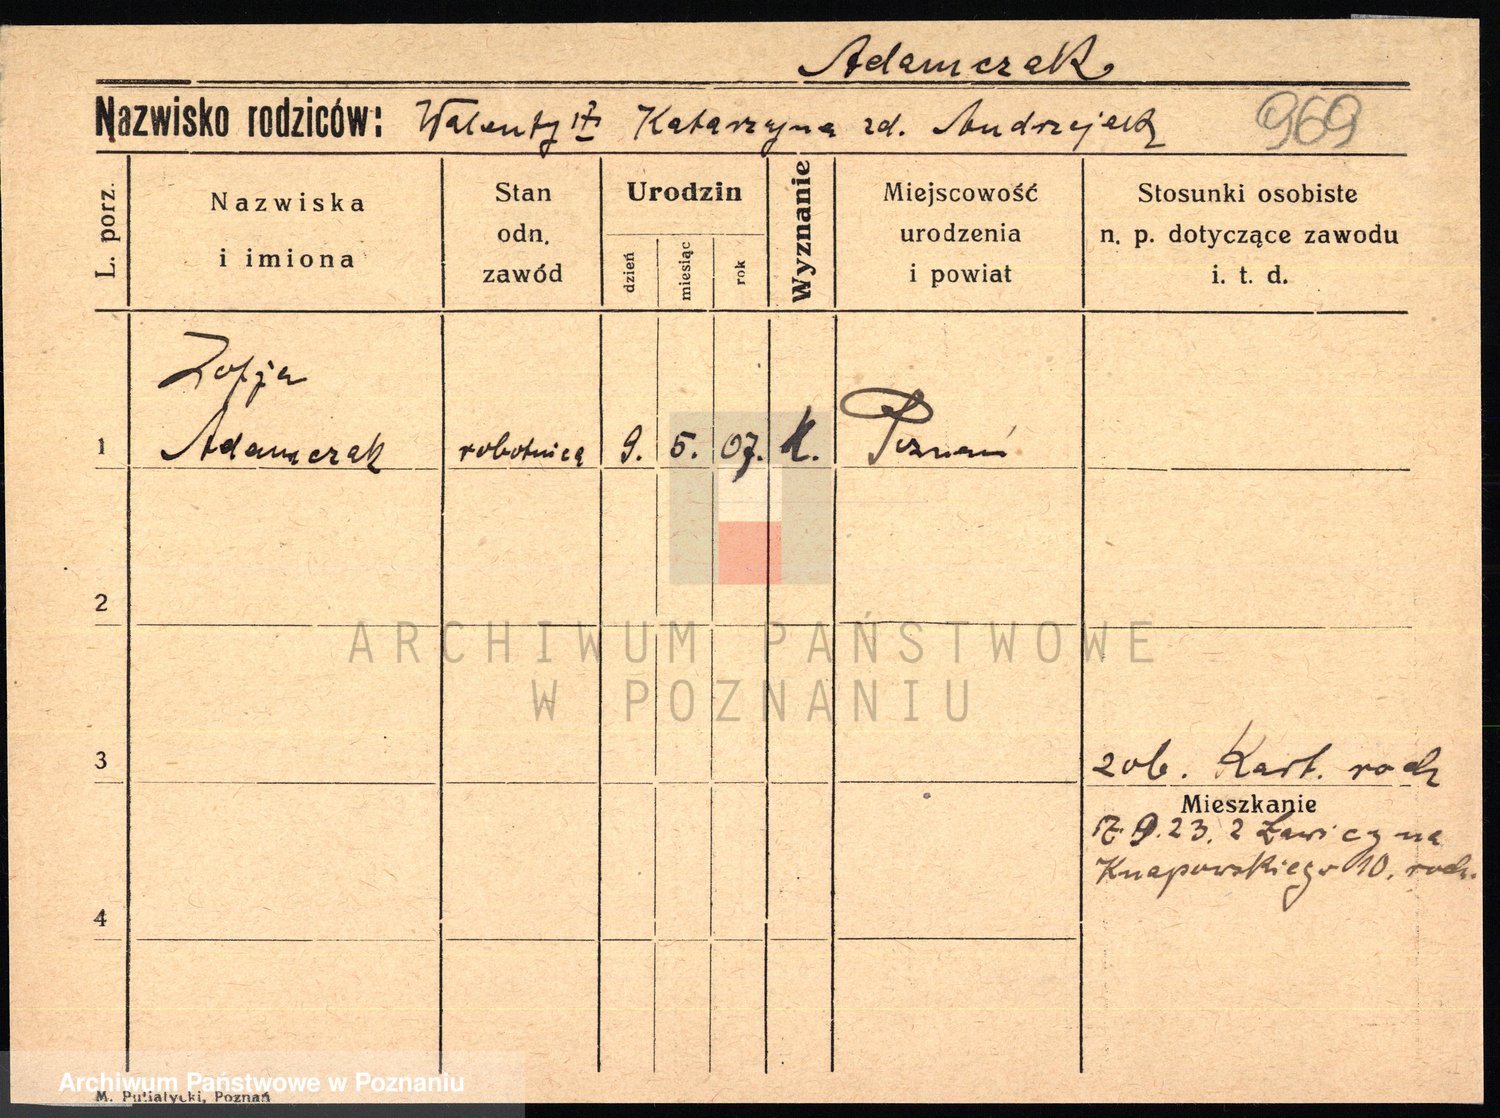 Adamczak
Nazwisko rodziców: Walenty i Katarzyna zd. Andrzejak 969
L. porz.
Nazwiska
i imiona
Stan
odn.
zawód
Urodzin
dzień
miesiąc
rok
Wyznanie
Miejscowość
urodzenia
i powiat
Stosunki osobiste
n. p. dotyczące zawodu
i. t. d.
Zofja
1 Adamczak robotnica 9. 5. 07. K. Poznań
2
ARCHIWUM PAŃSTWOWE
W POZNANIU
3
zob. Kart. rodz
Mieszkanie
17.9.23. z Ławicy na
Knapowskiego 10. rodz.
4
Archiwum Państwowe w Poznaniu
M. Putiatycki, Poznań